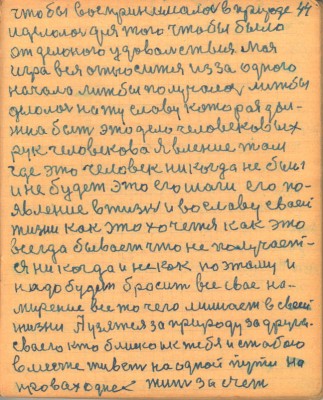 чтобы воспринималов в природе 44
и делолос для того чтобы было
эт делоного удовалствия мая
игра вся относится из за одного
начала литбы получалос литбы
делолос на ту славу которая дол-
жна быть это дело человековых
рук человекова явление там
где это человек никогда не был
и не будет это его шаги его по-
явление в жизни во славу своей
жизни как это хочется как это
всегда бывает что не получает-
ся никогда и некак поэтаму и
надо будет бросит все свае на-
мирение все то чего лишает в своей
жизни А узятся за природу за друга
сваего кто близок к тебя и с тобою
вместе живет на одной пути на
провах однех жит за счет